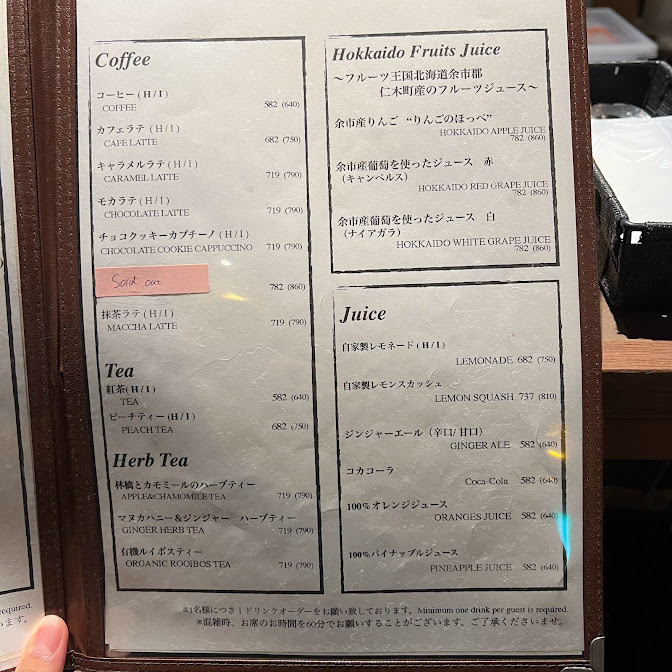 Coffee
コーヒー (H/I)
COFFEE 582 (640)
カフェラテ (H/I)
CAFE LATTE 682 (750)
キャラメルラテ (H/I)
CARAMEL LATTE 719 (790)
モカラテ (H/I)
CHOCOLATE LATTE 719 (790)
チョコクッキーカプチーノ (H/I)
CHOCOLATE COOKIE CAPPUCCINO 719 (790)
Sold out
782 (860)
抹茶ラテ (H/I)
MACCHA LATTE 719 (790)
Tea
紅茶(H/I)
TEA 582 (640)
ピーチティー (H/I)
PEACH TEA 682 (750)
Herb Tea
林檎とカモミールのハーブティー
APPLE&CHAMOMILE TEA 719 (790)
マヌカハニー＆ジンジャー ハーブティー
GINGER HERB TEA 719 (790)
有機ルイボスティー
ORGANIC ROOIBOS TEA 719 (790)
Hokkaido Fruits Juice
～フルーツ王国北海道余市郡
仁木町産のフルーツジュース～
余市産りんご “りんごのほっぺ”
HOKKAIDO APPLE JUICE
782 (860)
余市産葡萄を使ったジュース 赤
（キャンベルス）
HOKKAIDO RED GRAPE JUICE
782 (860)
余市産葡萄を使ったジュース 白
（ナイアガラ）
HOKKAIDO WHITE GRAPE JUICE
782 (860)
Juice
自家製レモネード (H/I)
LEMONADE 682 (750)
自家製レモンスカッシュ
LEMON SQUASH 737 (810)
ジンジャーエール（辛口/ 甘口）
GINGER ALE 582 (640)
コカコーラ
Coca-Cola 582 (640)
100%オレンジジュース
ORANGES JUICE 582 (640)
100%パイナップルジュース
PINEAPPLE JUICE 582 (640)
※1名様につき1ドリンクオーダーをお願い致しております。Minimum one drink per guest is required.
※混雑時、お席のお時間を60分でお願いすることがございます。ご了承くださいませ。
required.
ます。